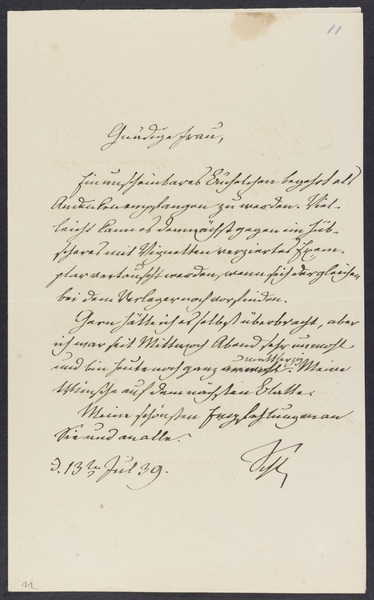 11
Gnädige Frau,
Ein unscheinbares Büchelchen begehrt als
Andenken empfangen zu werden. Viel-
leicht kann es demnächst gegen ein hüb-
scheres mit Vignetten verziertes Exem-
plar vertauscht werden, wenn sich dergleichen
bei dem Verleger noch vorfinden.
Gern hätte ich es selbst überbracht, aber
ich war seit Mittwoch Abend sehr unwohl
und bin heute noch ganz mattherzig. Meine
Wünsche auf dem nächsten Blatte.
Meine schönsten Empfehlungen an
Sie und an alle.
d. 13ten Jul 39.
Schl
11